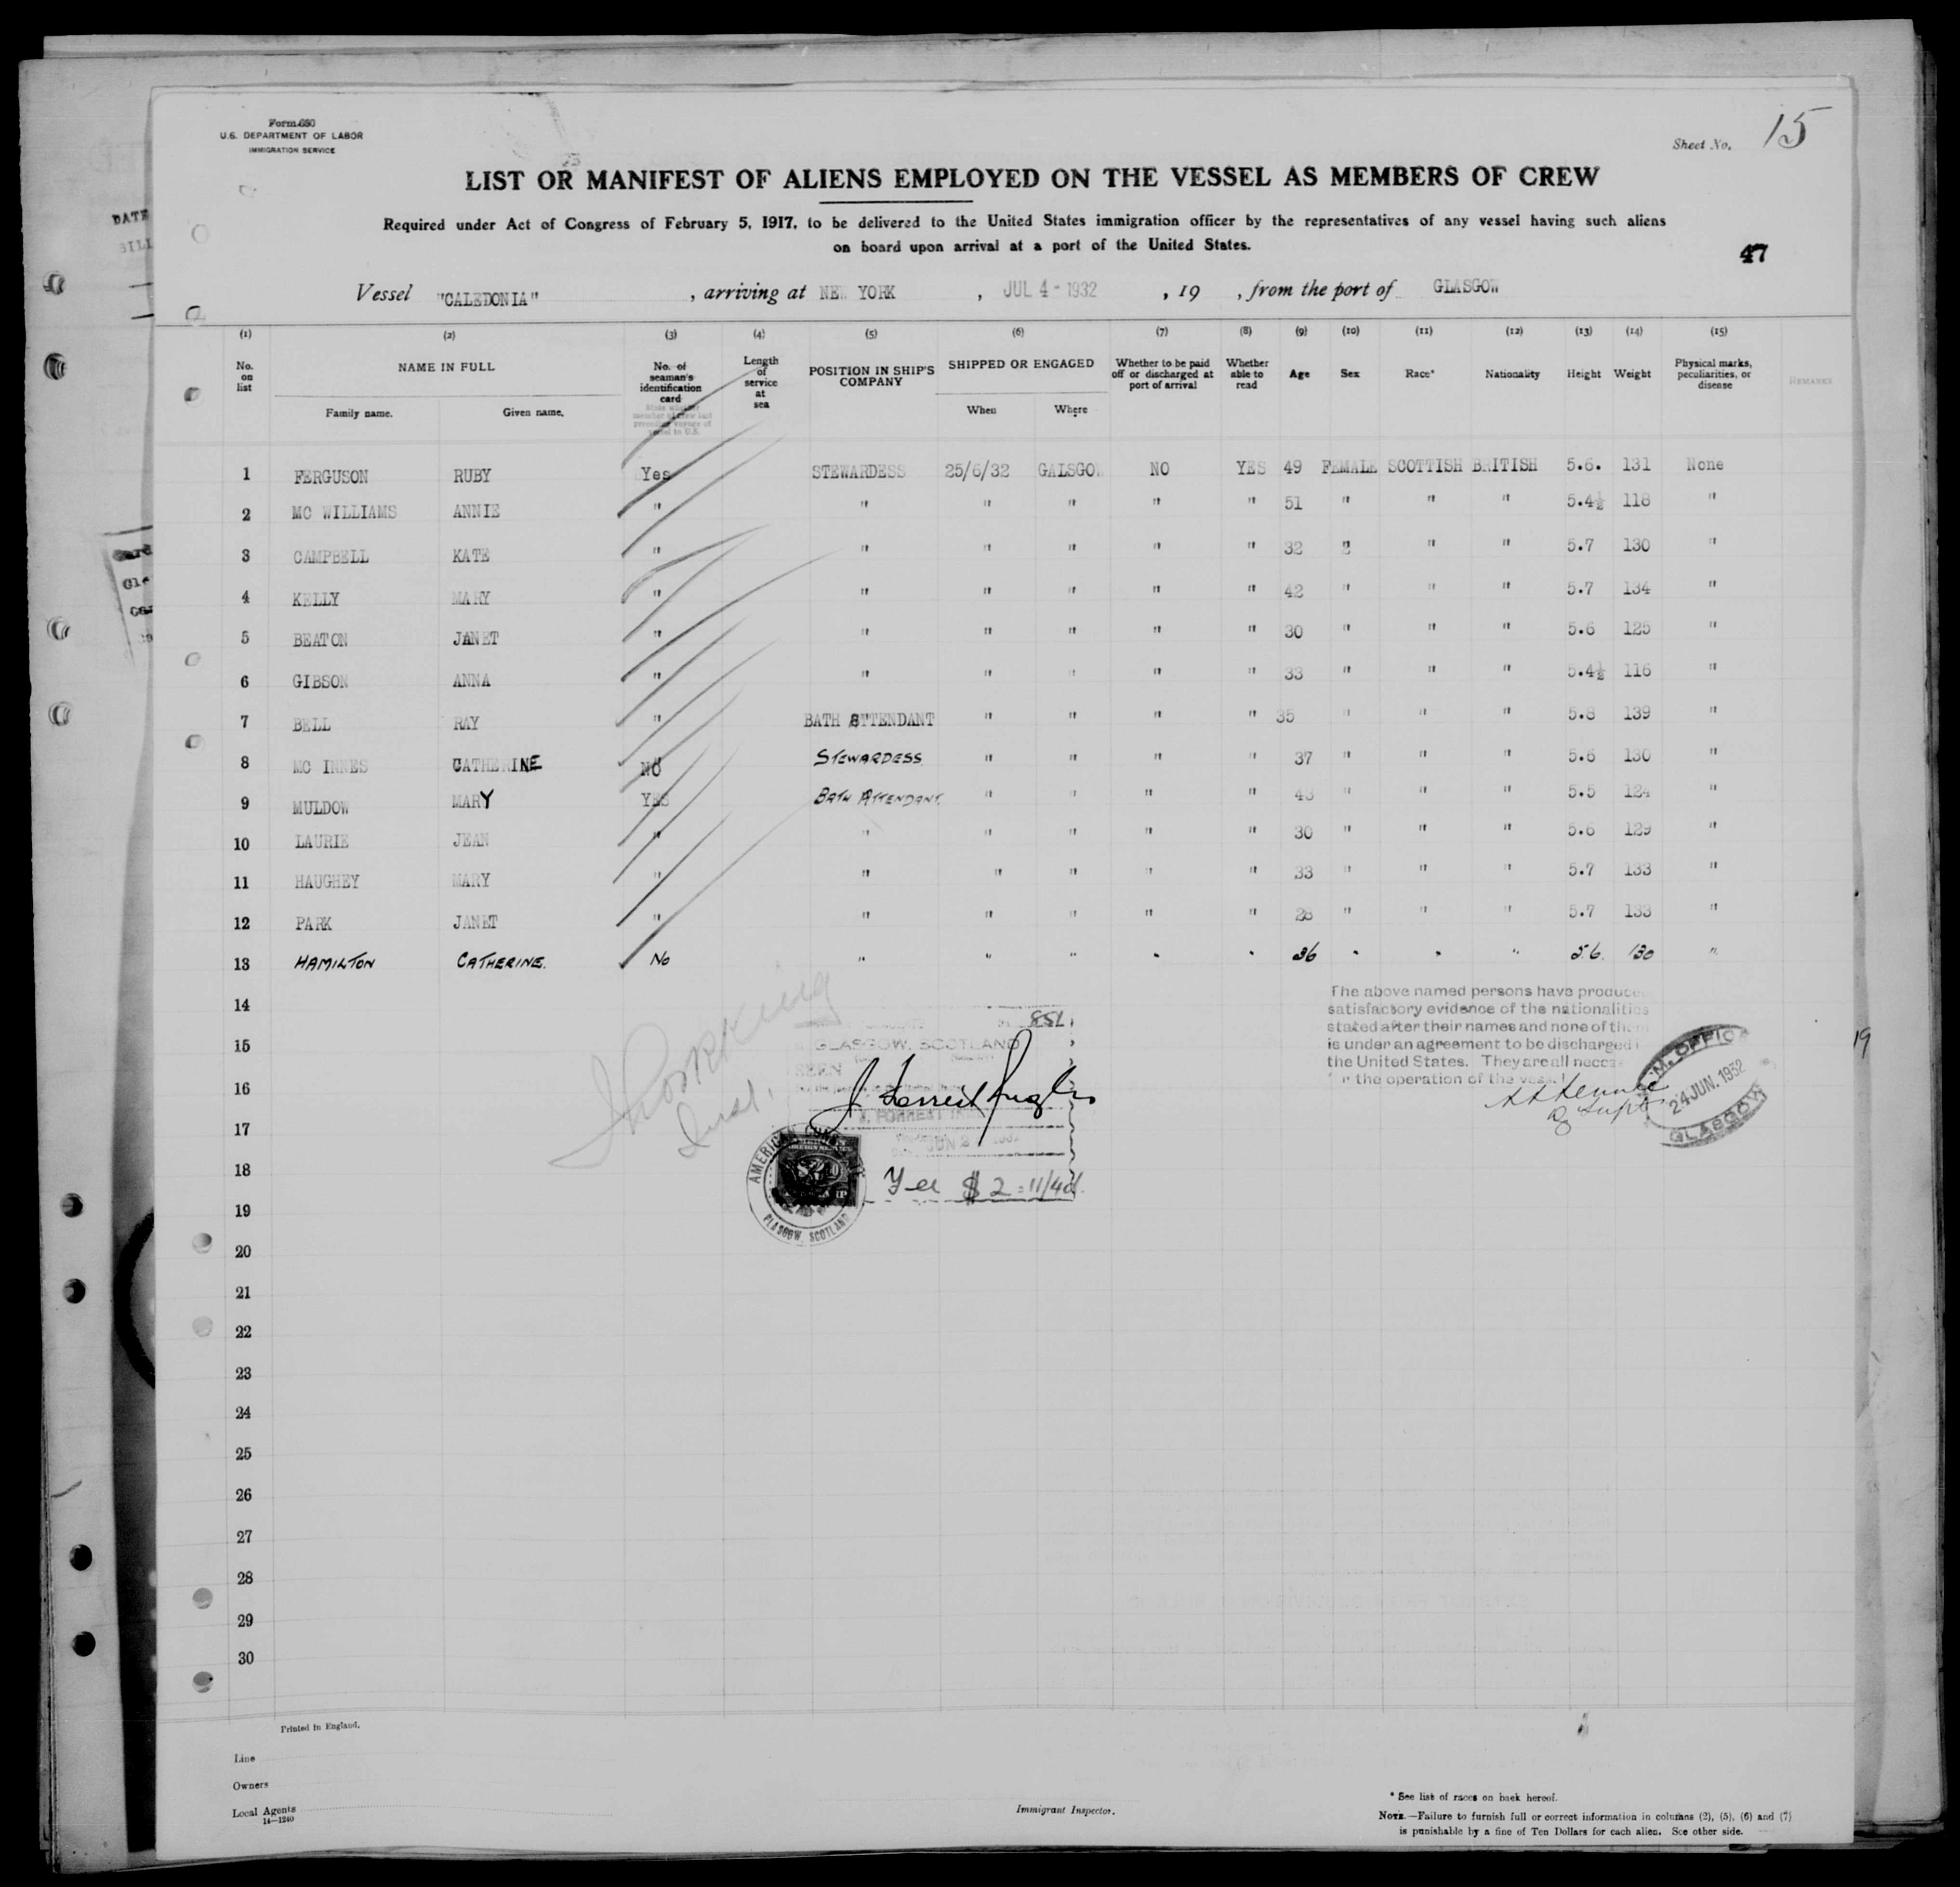 Form 680
U.S. DEPARTMENT OF LABOR
IMMIGRATION SERVICE
Sheet No. 15
LIST OR MANIFEST OF ALIENS EMPLOYED ON THE VESSEL AS MEMBERS OF CREW
Required under Act of Congress of February 5, 1917, to be delivered to the United States immigration officer by the representatives of any vessel having such aliens
on board upon arrival at a port of the United States.
47
Vessel "CALEDONIA", arriving at NEW YORK, JUL 4 - 1932, 19 , from the port of GLASGOW
(1) (2) (3) (4) (5) (6) (7) (8) (9) (10) (11) (12) (13) (14) (15)
No. on list NAME IN FULL Family name. Given name. No. of seaman's identification card Length of service at sea POSITION IN SHIP'S COMPANY SHIPPED OR ENGAGED When Where Whether to be paid off or discharged at port of arrival Whether able to read Age Sex Race* Nationality Height Weight Physical marks, peculiarities, or disease REMARKS
State whether member of crew last preceding voyage of vessel to U.S.
1 FERGUSON RUBY Yes STEWARDESS 25/6/32 GALSGOW NO YES 49 FEMALE SCOTTISH BRITISH 5.6. 131 None
2 MC WILLIAMS ANNIE " " " " " " 51 " " " 5.4½ 118 "
3 CAMPBELL KATE " " " " " " 32 " " " 5.7 130 "
4 KELLY MARY " " " " " " 42 " " " 5.7 134 "
5 BEATON JANET " " " " " " 30 " " " 5.6 125 "
6 GIBSON ANNA " " " " " " 33 " " " 5.4½ 116 "
7 BELL RAY " BATH ATTENDANT " " " " 35 " " " 5.8 139 "
8 MC INNES CATHERINE NO STEWARDESS " " " " 37 " " " 5.6 130 "
9 MULDOW MARY YES BATH ATTENDANT " " " " 43 " " " 5.5 124 "
10 LAURIE JEAN " " " " " " 30 " " " 5.6 129 "
11 HAUGHEY MARY " " " " " " 33 " " " 5.7 133 "
12 PARK JANET " " " " " " 28 " " " 5.7 133 "
13 HAMILTON CATHERINE. No " " " " " 36 " " " 5.6. 130 "
14
15
16
17
18
19
20
21
22
23
24
25
26
27
28
29
30
The above named persons have produce
satisfactory evidence of the nationalities
stated after their names and none of them
is under an agreement to be discharged i
the United States. They are all neces-
the operation of the vessel
24 JUN. 1932
GLASGOW
GLASGOW, SCOTLAND
SEEN
AMERICAN
GLASGOW, SCOTLAND
Fee $2 = 11/4d.
Printed in England.
Line
Owners
Local Agents
14—1240
Immigrant Inspector.
* See list of races on back hereof.
NOTE.—Failure to furnish full or correct information in columns (2), (5), (6) and (7)
is punishable by a fine of Ten Dollars for each alien. See other side.
DATE